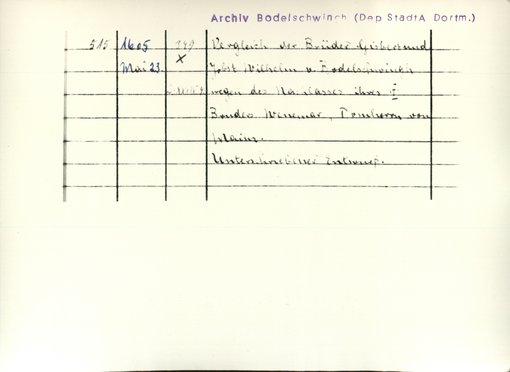 Archiv Bodelschwingh (Dep StadtA Dortm.)
515 1605 Vergleich der Brüder Gisbert und
Mai 23. × Jobst Wilhelm v. Bodelschwingh
wegen des Nachlasses ihres I
Bruders Wenemar, Domherrn von
Mainz.
Unterschriebener Entwurf.